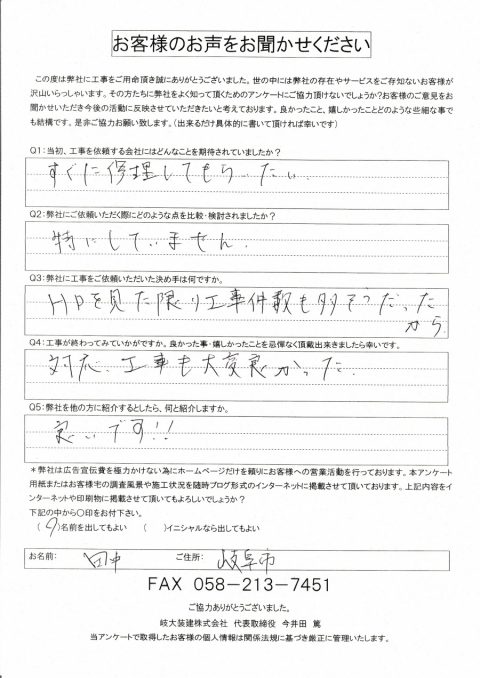 お客様のお声をお聞かせください
この度は弊社に工事をご用命頂き誠にありがとうございました。世の中には弊社の存在やサービスをご存知ないお客様が
沢山いらっしゃいます。その方たちに弊社をよく知って頂くためのアンケートにご協力頂けないでしょうか?お客様のご意見をお
聞かせいただき今後の活動に反映させていただきたいと考えております。良かったこと、嬉しかったことどのような些細な事で
も結構です。是非ご協力お願い致します。(出来るだけ具体的に書いて頂ければ幸いです)
Q1:当初、工事を依頼する会社にはどんなことを期待されていましたか?
すぐに修理してもらいたい
Q2:弊社にご依頼いただく際にどのような点を比較・検討されましたか?
特にしていません
Q3:弊社に工事をご依頼いただいた決め手は何ですか。
HPを見た限り工事件数も多そうだった
から
Q4:工事が終わってみていかがですか。良かった事・嬉しかったことを忌憚なく頂戴出来きましたら幸いです。
対応、工事も大変良かった。
Q5:弊社を他の方に紹介するとしたら、何と紹介しますか。
良いです!!
*弊社は広告宣伝費を極力かけない為にホームページだけを頼りにお客様への営業活動を行っております。本アンケート
用紙またはお客様宅の調査風景や施工状況を随時ブログ形式のインターネットに掲載させて頂いております。上記内容をイ
ンターネットや印刷物に掲載させて頂いてもよろしいでしょうか?
下記の中から〇印をお付下さい。
(○)名前を出してもよい ( )イニシャルなら出してもよい
お名前: 田中 ご住所: 岐阜市
FAX 058-213-7451
ご協力ありがとうございました。
岐大装建株式会社 代表取締役 今井田 篤
当アンケートで取得したお客様の個人情報は関係法規に基づき厳正に管理いたします。